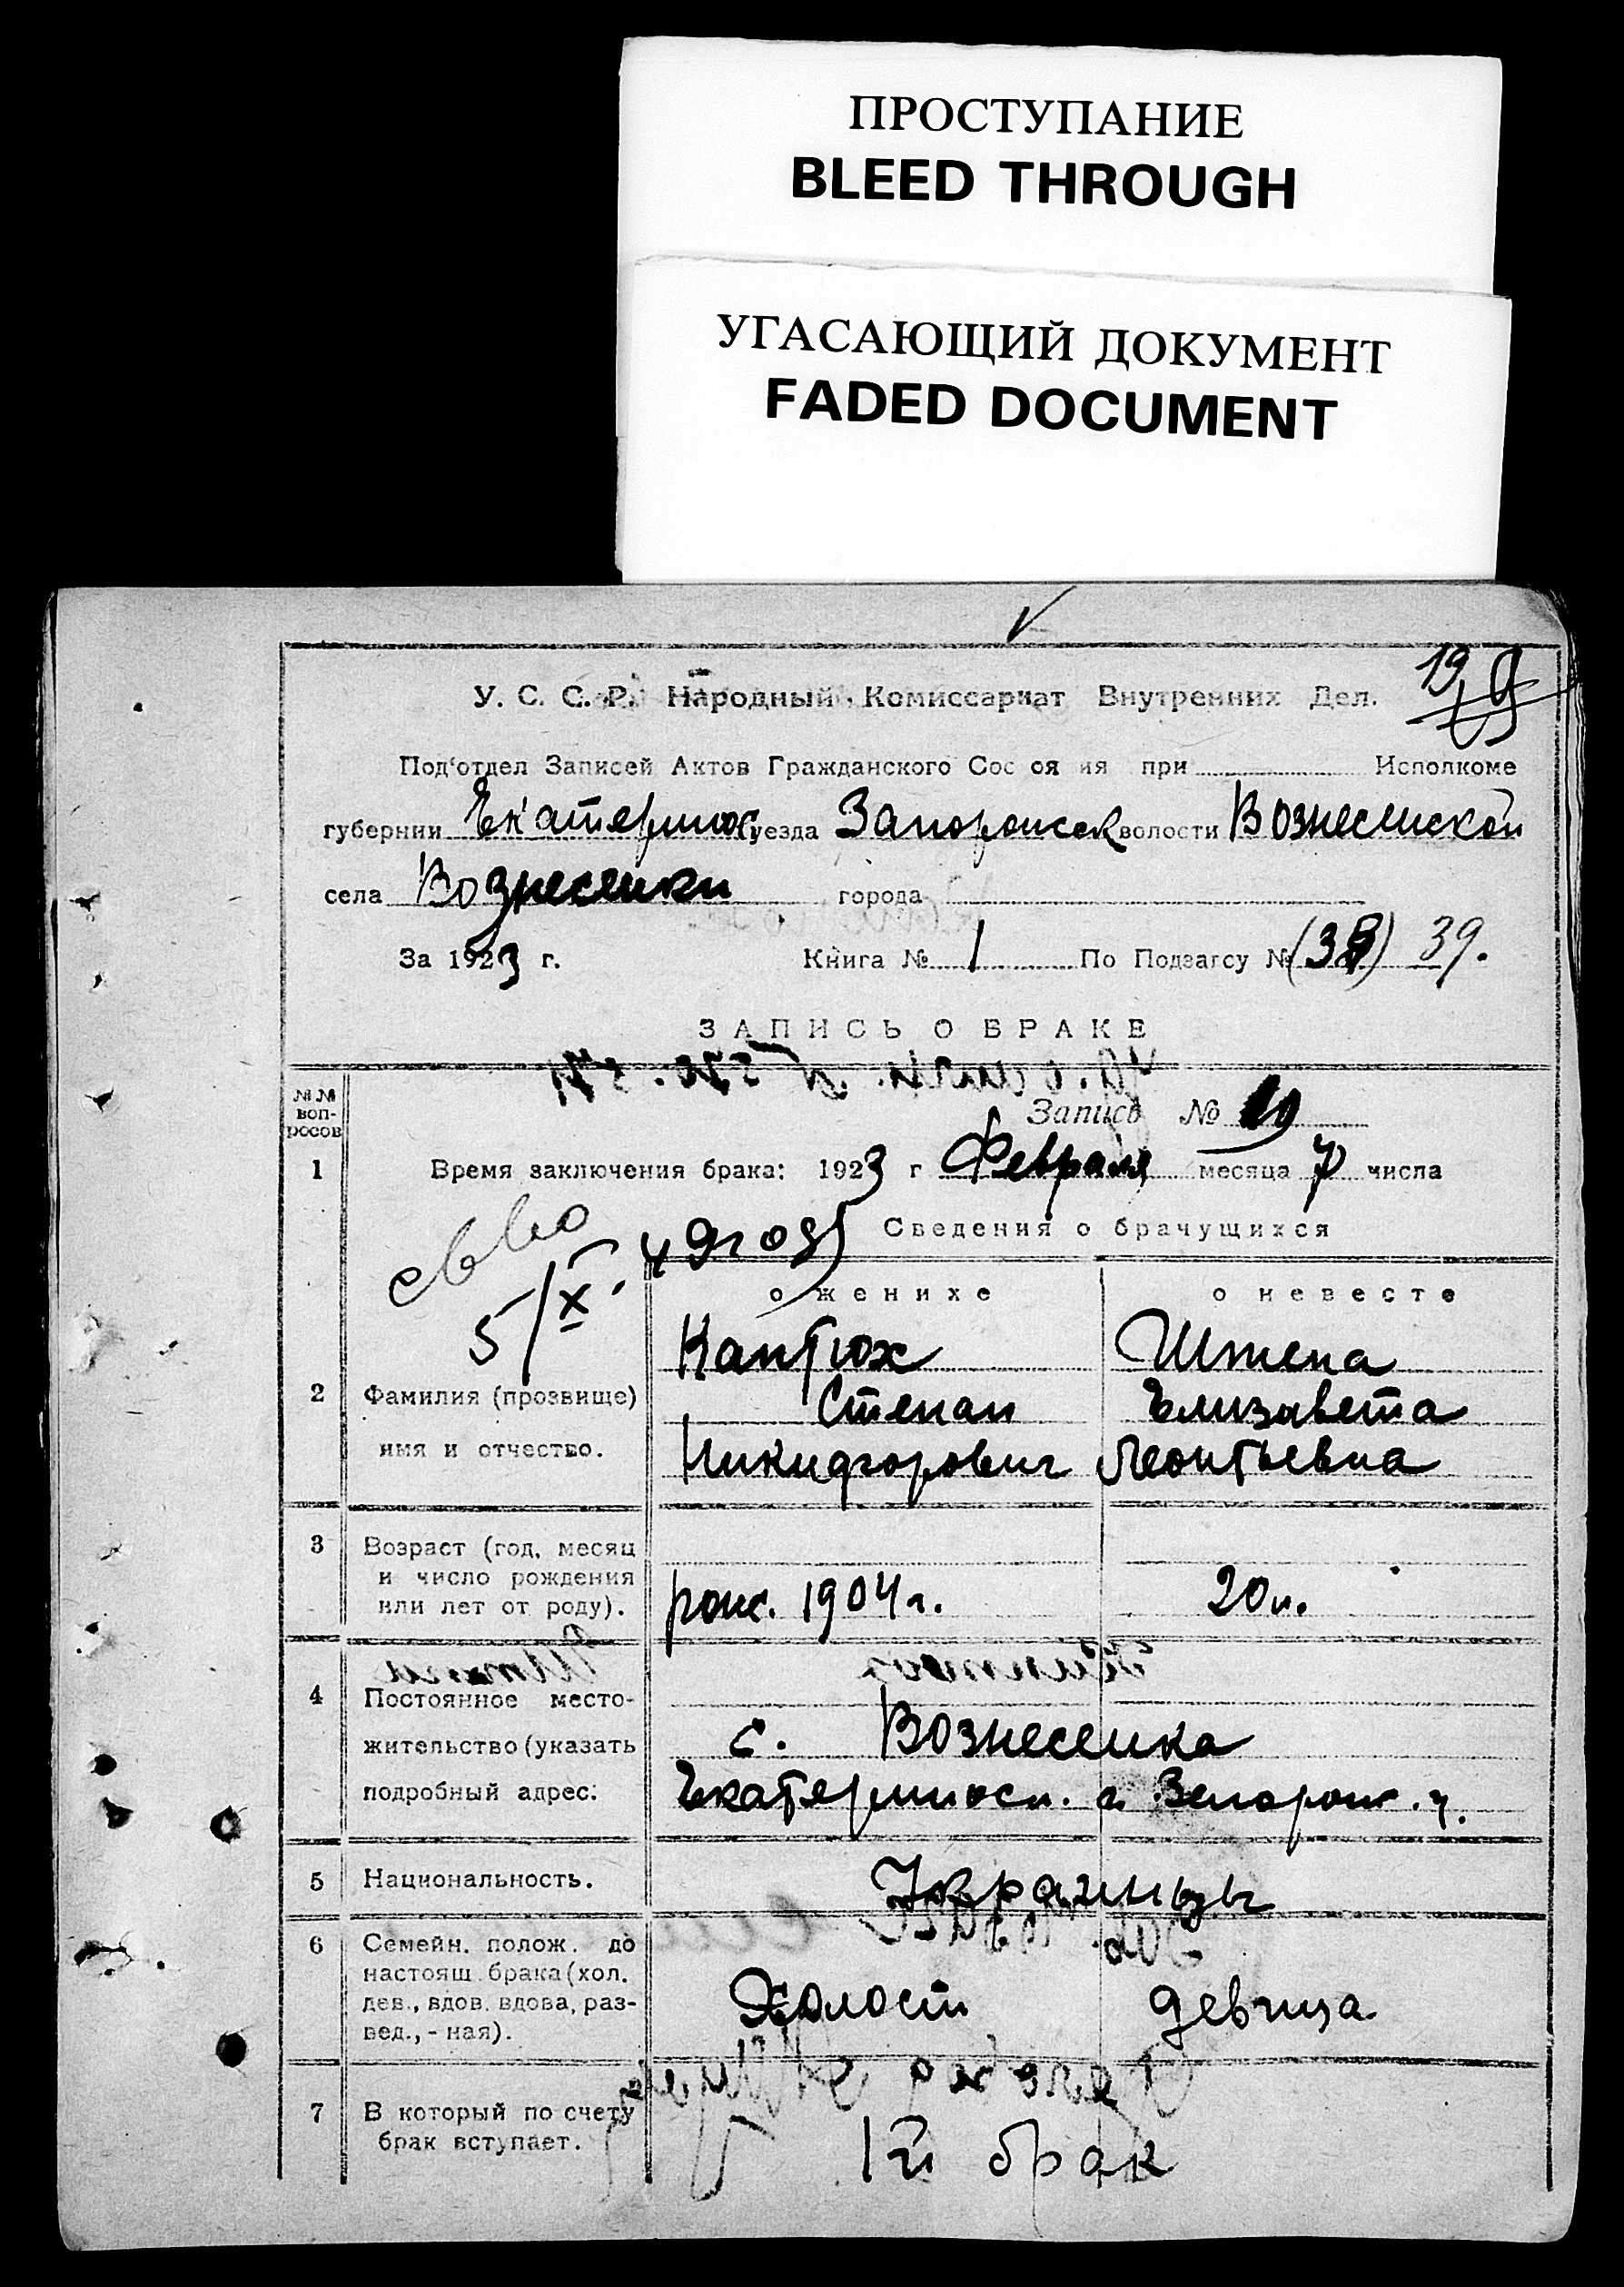 ПРОСТУПАНИЕ
BLEED THROUGH
УГАСАЮЩИЙ ДОКУМЕНТ
FADED DOCUMENT
19
У. С. С. Р. Народный Комиссариат Внутренних Дел.
Под‘отдел Записей Актов Гражданского Сос оя ия при Исполкоме
губернии Екатеринос уезда Запорожск волости Вознесенской
села Вознесенки города
За 1923 г. Книга № 1 По Подзагсу № (38) 39.
ЗАПИСЬ О БРАКЕ
№№ воп-
росов
Запись № 19
1 Время заключения брака: 1923 г Февраля месяца 7 числа
Сведения о брачущихся
5/X
о женихе о невесте
Каптюх Штепа
2 Фамилия (прозвище) Степан Елизавета
имя и отчество. Никифорович Леонтьевна
3 Возраст (год, месяц
и число рождения
или лет от роду). рож. 1904 г. 20 л.
4 Постоянное место-
жительство (указать с. Вознесенка
подробный адрес: Екатериносл. г. Запорож. у.
5 Национальность. Украинцы
6 Семейн. полож. до
настоящ. брака (хол.
дев., вдов. вдова, раз- Холост девица
вед., - ная).
7 В который по счету
брак вступает. 1й брак